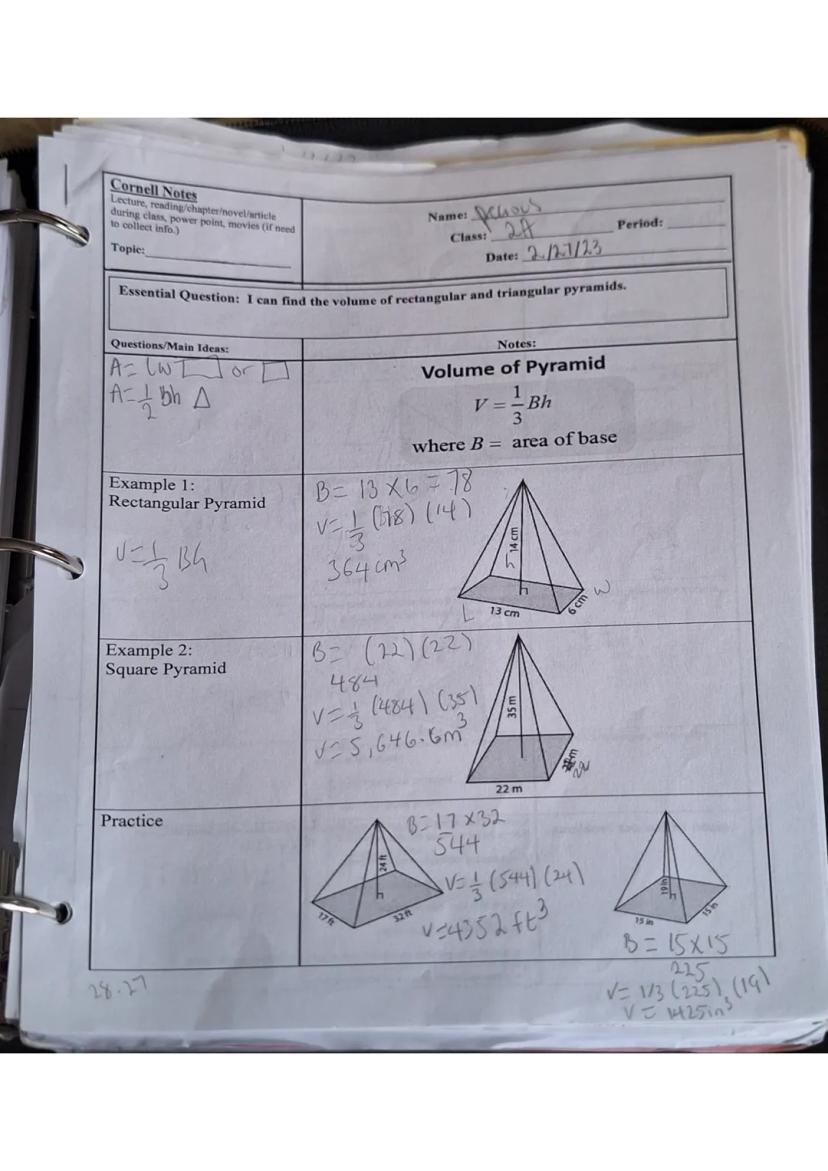 Cornell Notes
Lecture, reading/chapter/novel/article
during class, power point, movies (if need
to collect info.)
Topic:
Name:
Class: 2A
Period:
Date: 2/27/23
Essential Question: I can find the volume of rectangular and triangular pyramids.
Questions/Main Ideas:
A= lw ▭ or □
A=1/2 Bh △
Notes:
Volume of Pyramid
V = 1/3 Bh
where B = area of base
Example 1:
Rectangular Pyramid
V=1/3 Bh
B= 13 x 6 = 78
V=1/3 (78) (14)
364 cm³
14 cm
h
L
13 cm
6 cm
W
Example 2:
Square Pyramid
B= (22)(22)
484
V=1/3 (484) (35)
V=5,646.6m³
35 m
22 m
Practice
24 ft
17 ft
32 ft
B=17 x32
544
V=1/3 (544) (24)
V=4352 ft³
19 in
15 in
15 in
B= 15x15
225
V= 1/3 (225) (19)
V= 1425in³
28.27